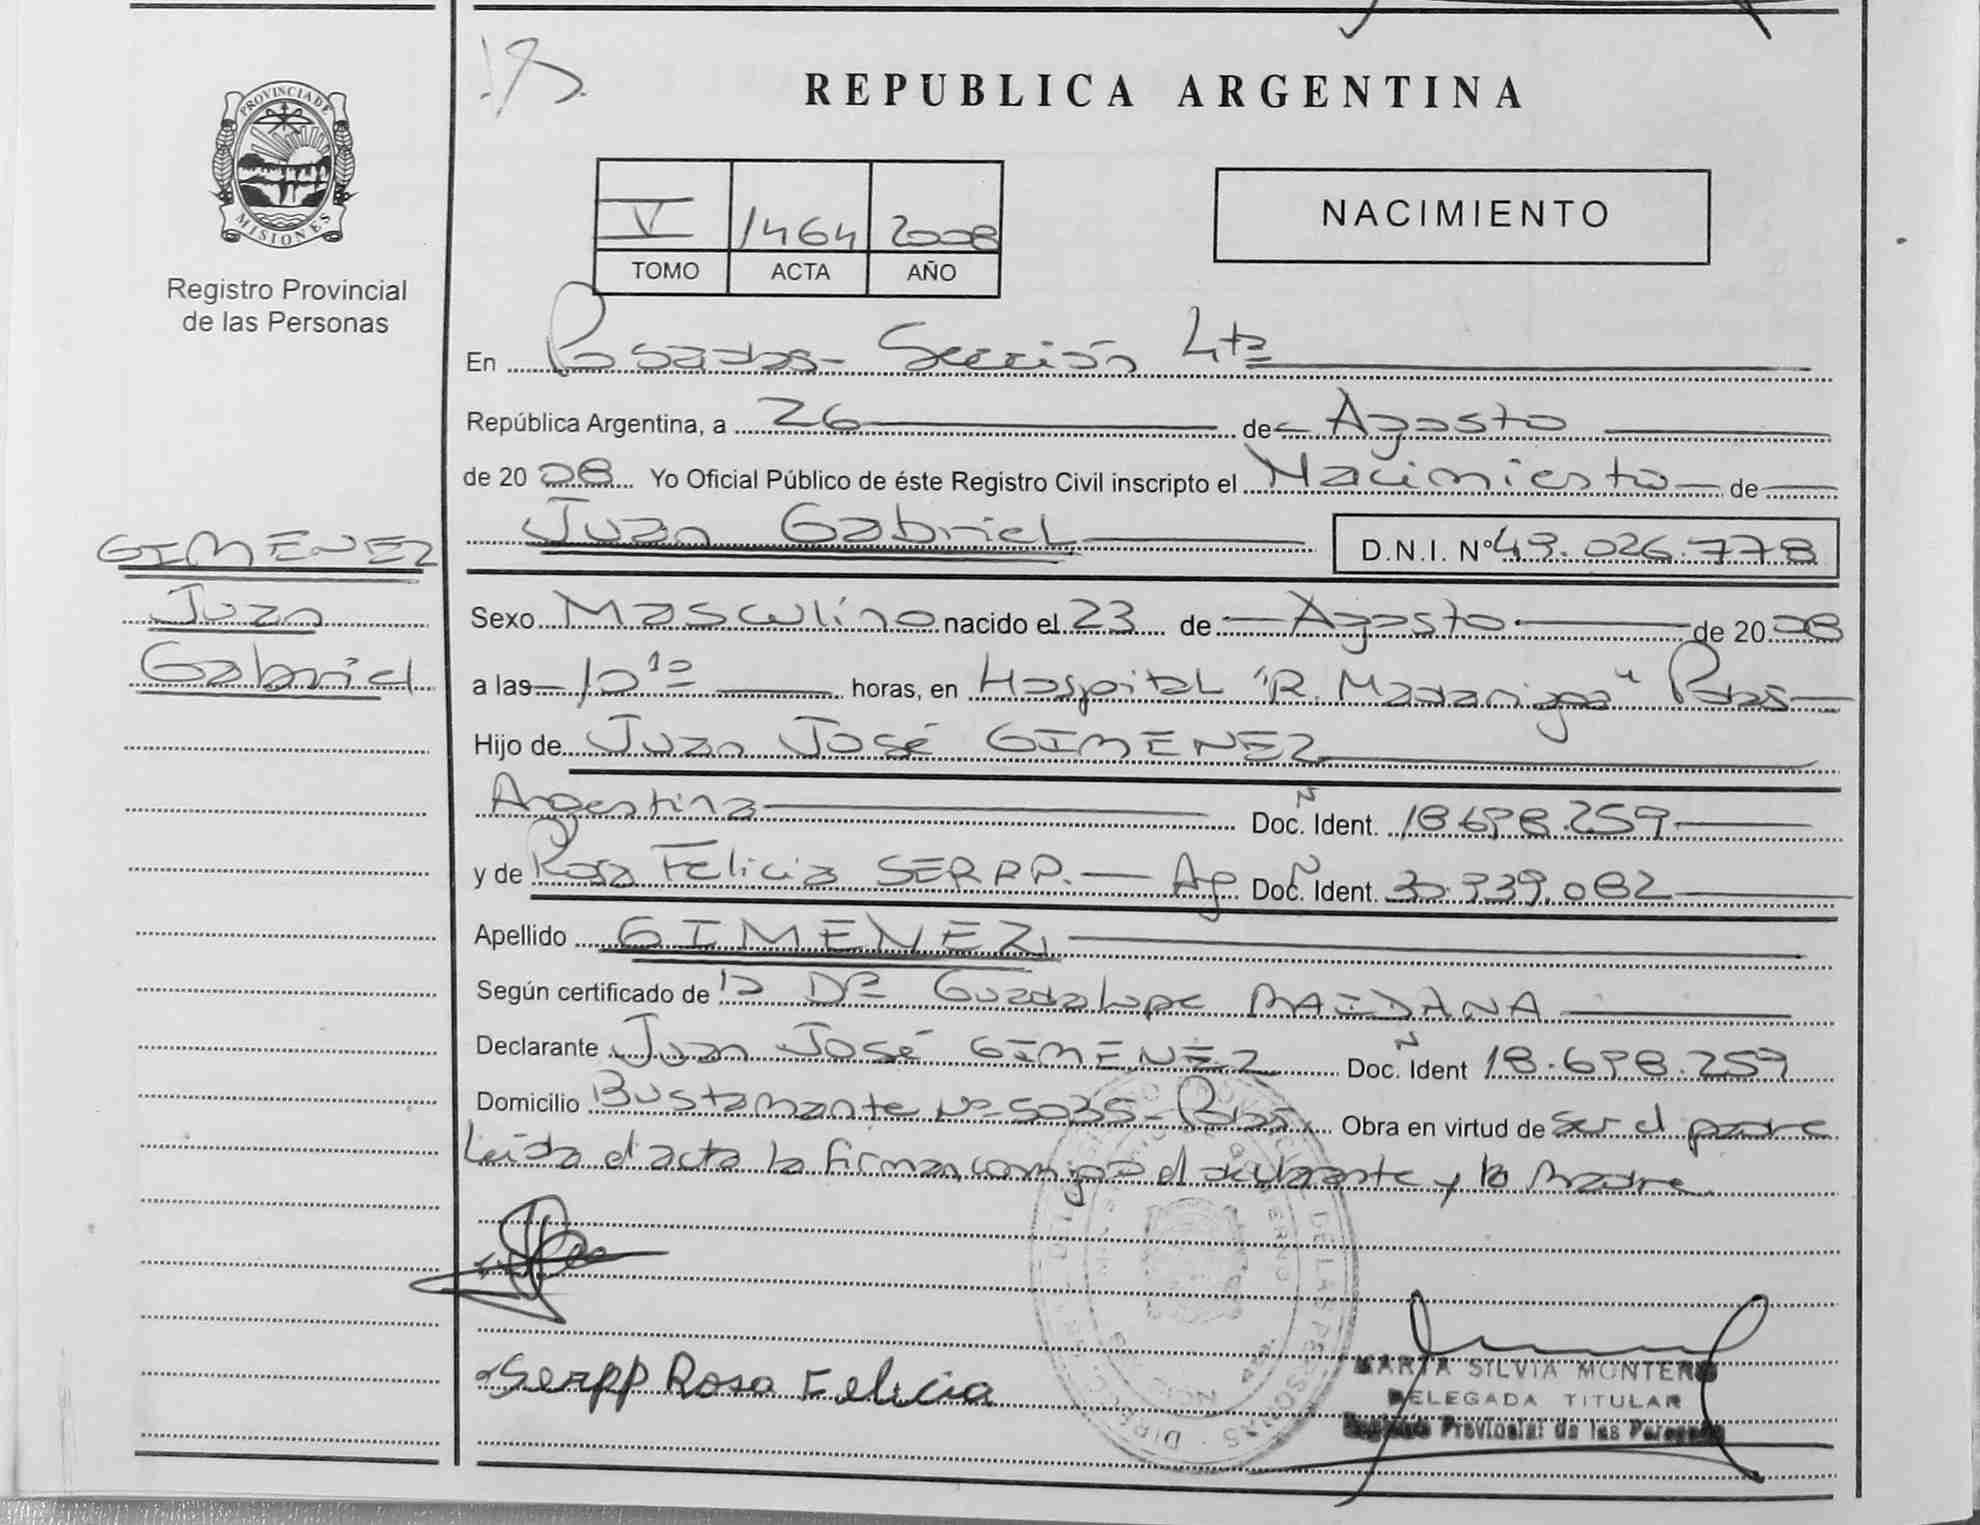 REPUBLICA ARGENTINA
PROVINCIA DE
MISIONES
Registro Provincial
de las Personas
V 1464 2008
TOMO ACTA AÑO
NACIMIENTO
En Posadas - Sección 4ta
República Argentina, a 26 de Agosto
de 2008 Yo Oficial Público de éste Registro Civil inscripto el Nacimiento de
Juan Gabriel D.N.I. Nº 49.026.778
GIMENEZ
Juan
Gabriel
Sexo Masculino nacido el 23 de Agosto de 2008
a las 10 10 horas, en Hospital "R. Madariaga" Pdas
Hijo de Juan José GIMENEZ
Argentina Doc. Ident. Nº 18.698.259
y de Rosa Felicia SERPP. - Ag Doc. Ident. Nº 30.939.082
Apellido GIMENEZ
Según certificado de la Dra Guadalupe MAIDANA
Declarante Juan José GIMENEZ Doc. Ident Nº 18.698.259
Domicilio Bustamante Nº 5035 - Pdas Obra en virtud de ser el padre
Leída el acta la firman conmigo el declarante y la madre.
Serpp Rosa Felicia
MARTA SILVIA MONTERO
DELEGADA TITULAR
Registro Provincial de las Personas